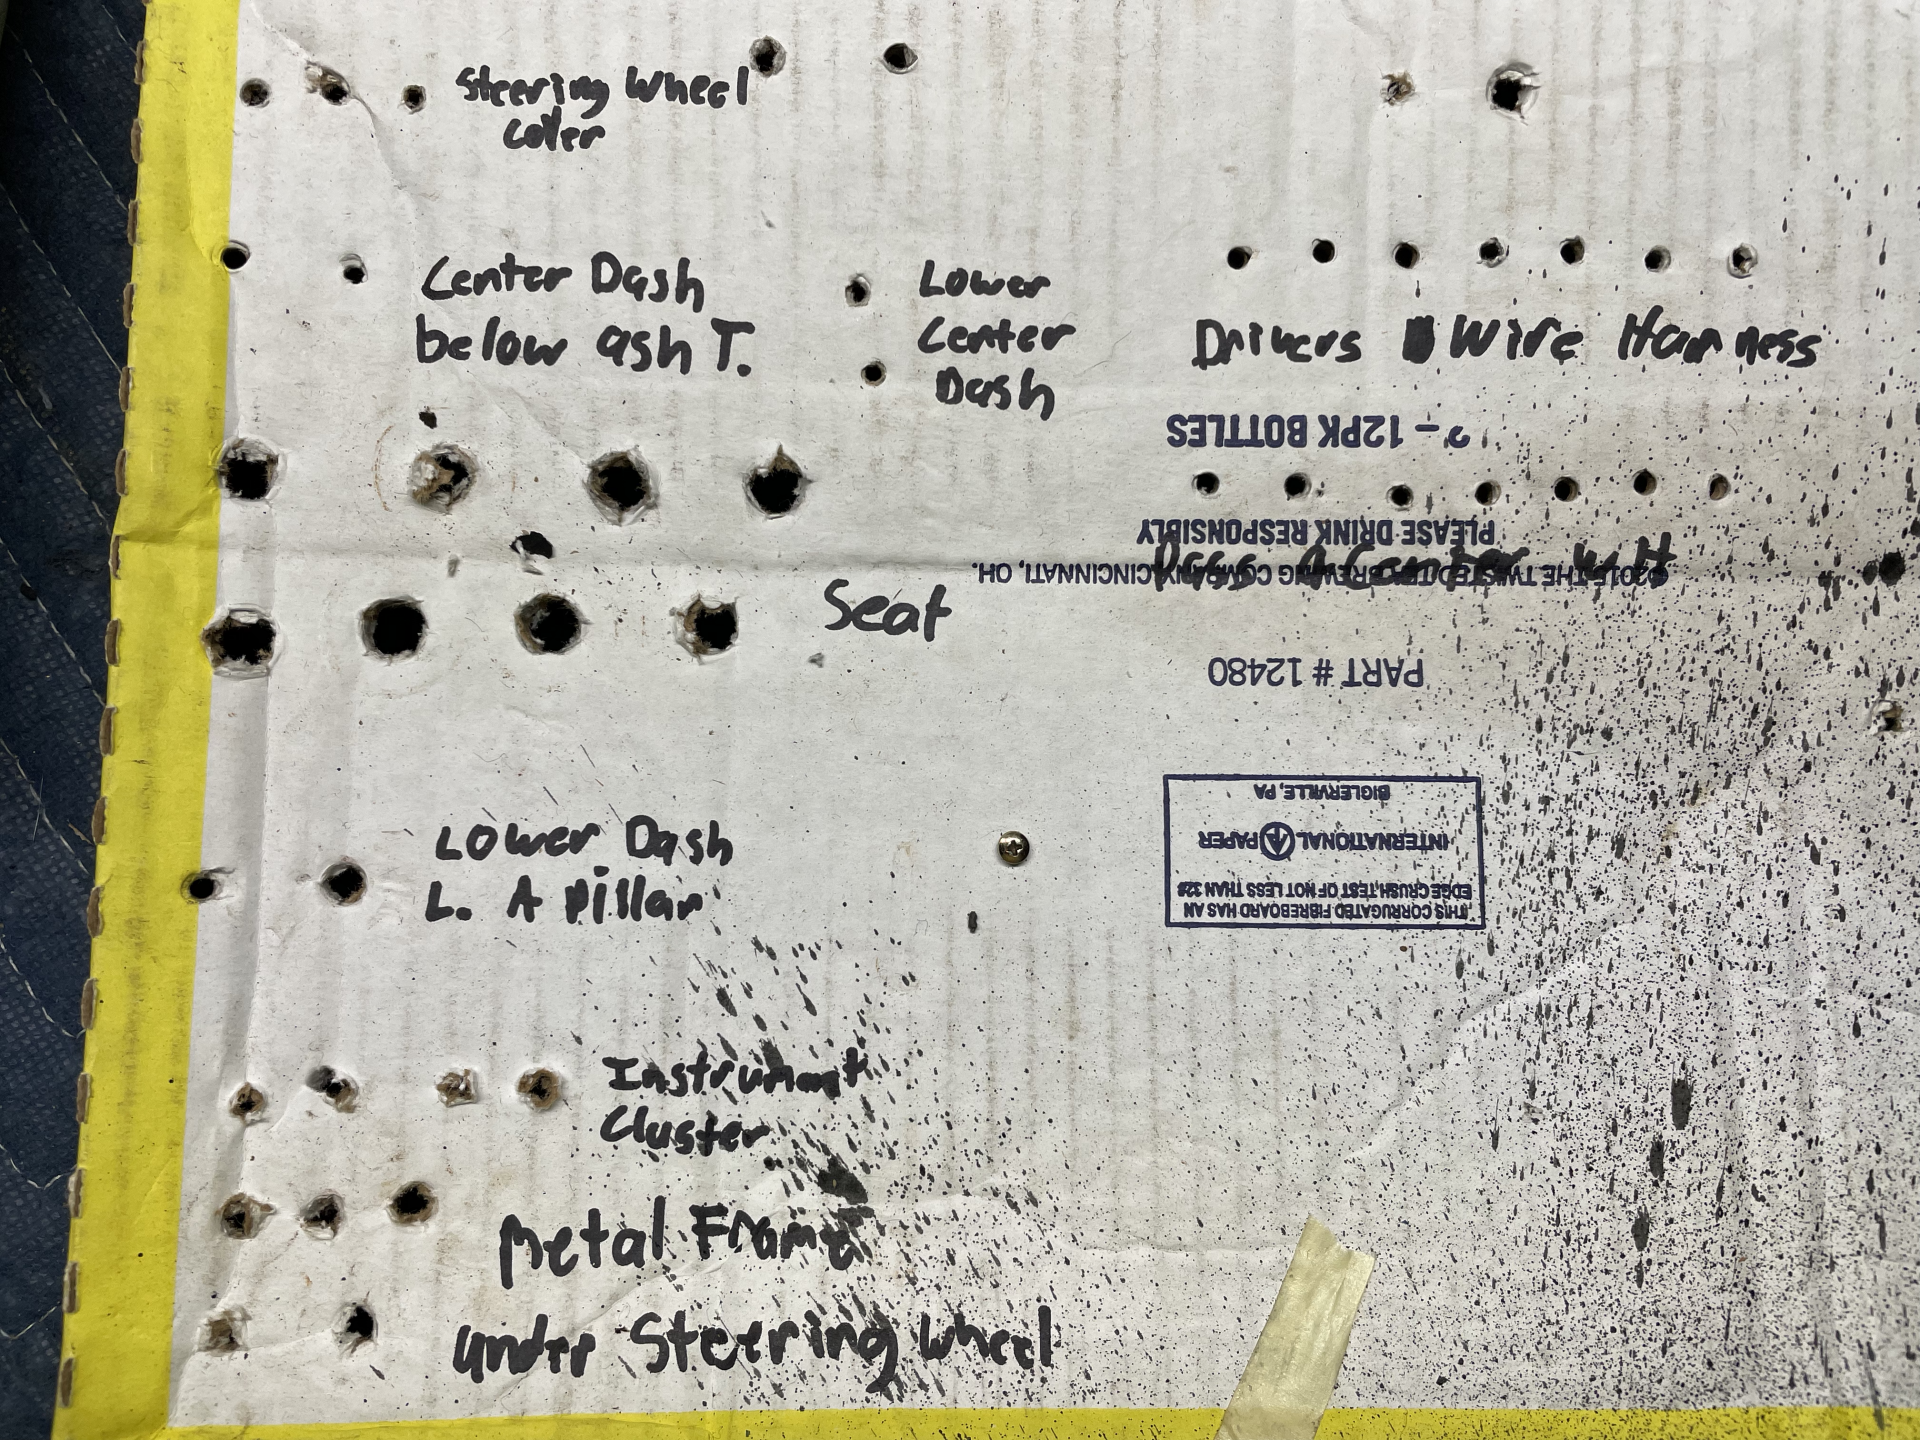 Steering Wheel
Center Dash
below ash T.
Lower
Center
Dash
Drivers Wire Harness
- 12PK BOTTLES
PLEASE DRINK RESPONSIBLY
©2015 THE TWISTED TEA BREWING COMPANY, CINCINNATI, OH.
Seat
PART # 12480
Lower Dash
L. A pillar
BIGLERVILLE, PA
INTERNATIONAL PAPER
EDGE CRUSH TEST OF NOT LESS THAN 32#
THIS CORRUGATED FIBREBOARD HAS AN
Instrument
Cluster
Metal Frame
under Steering Wheel